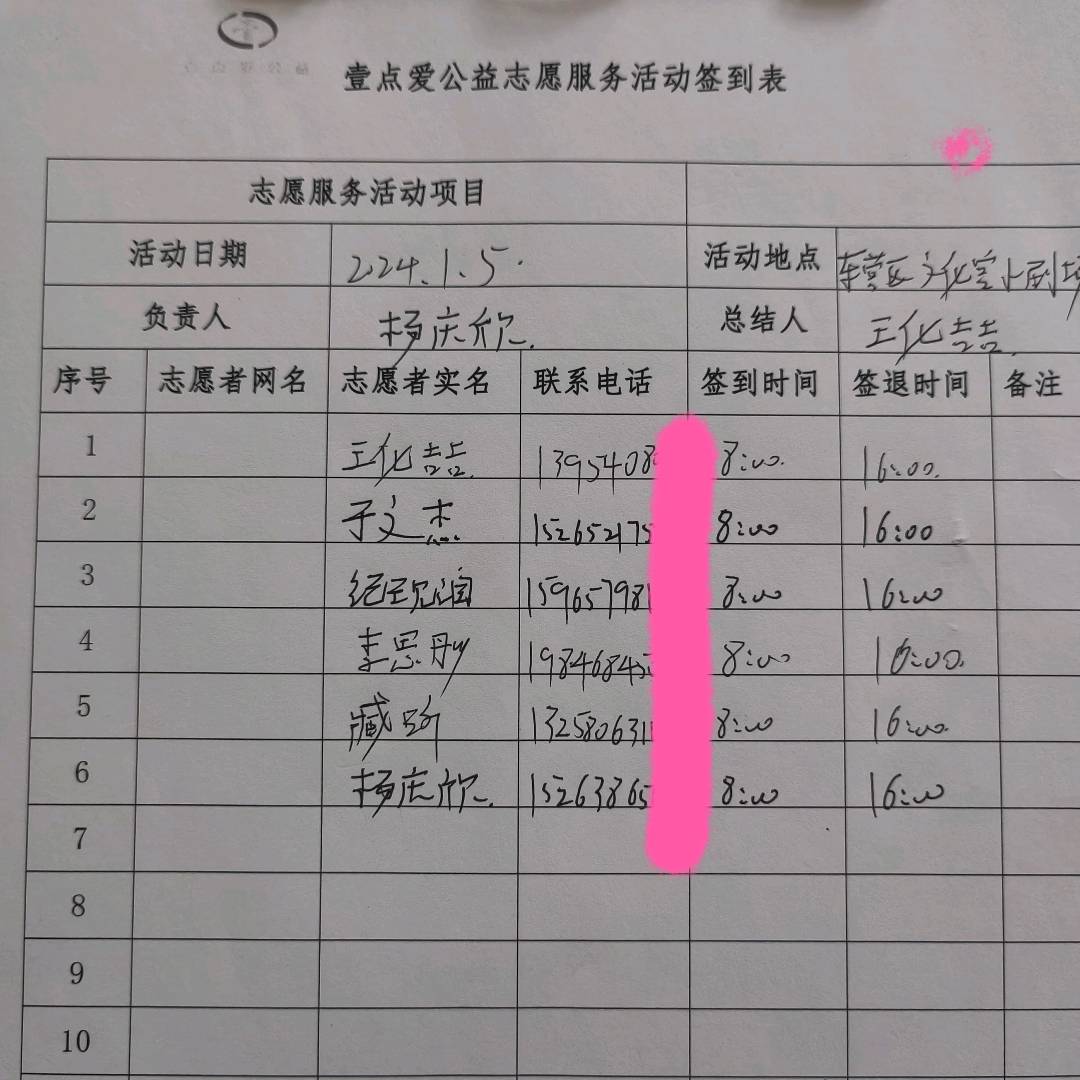 壹点爱公益志愿服务活动签到表
志愿服务活动项目
活动日期 224.1.5. 活动地点 车营区文化宫小剧场
负责人 杨庆欣. 总结人 王化喆.
序号 志愿者网名 志愿者实名 联系电话 签到时间 签退时间 备注
1 王化喆. 1395408 8:00. 16:00.
2 于文杰 152652175 8:00 16:00
3 159657981 8:00 16:00
4 李思彤 19846845 8:00 16:00.
5 臧 132580631 8:00 16:00.
6 杨庆欣. 15263865 8:00 16:00
7
8
9
10